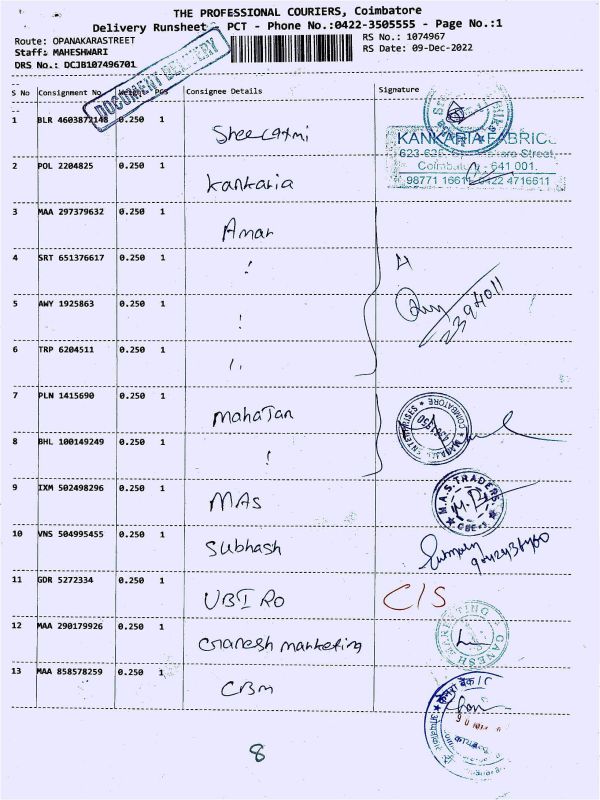 THE PROFESSIONAL COURIERS, Coimbatore
Delivery Runsheet - PCT - Phone No.:0422-3505555 - Page No.:1
Route: OPANAKARASTREET
RS No.: 1074967
Staff: MAHESHWARI
RS Date: 09-Dec-2022
DRS No.: DCJB107496701
DOCUMENT DELIVERY
S No Consignment No. Weight PCS Consignee Details Signature
1 BLR 4603872148 0.250 1 Sheelaxmi
KANKARIA FABRIC
Street,
Coimbatore - 641 001.
98771 16611, 0422 4716611
2 POL 2204825 0.250 1 Kankaria
3 MAA 297379632 0.250 1 Amar
4 SRT 651376617 0.250 1
5 AWY 1925863 0.250 1
2394011
6 TRP 6204511 0.250 1
7 PLN 1415690 0.250 1 Mahajan
ENTERPRISES * COIMBATORE
8 BHL 100149249 0.250 1
9 IXM 502498296 0.250 1 MAS
M.A.S. TRADERS
CBE-1
10 VNS 504995455 0.250 1 Subhash
11 GDR 5272334 0.250 1 UBI RO C/S
12 MAA 290179926 0.250 1 Ganesh marketing
GANESH MARKETING
13 MAA 858578259 0.250 1 CBM
8